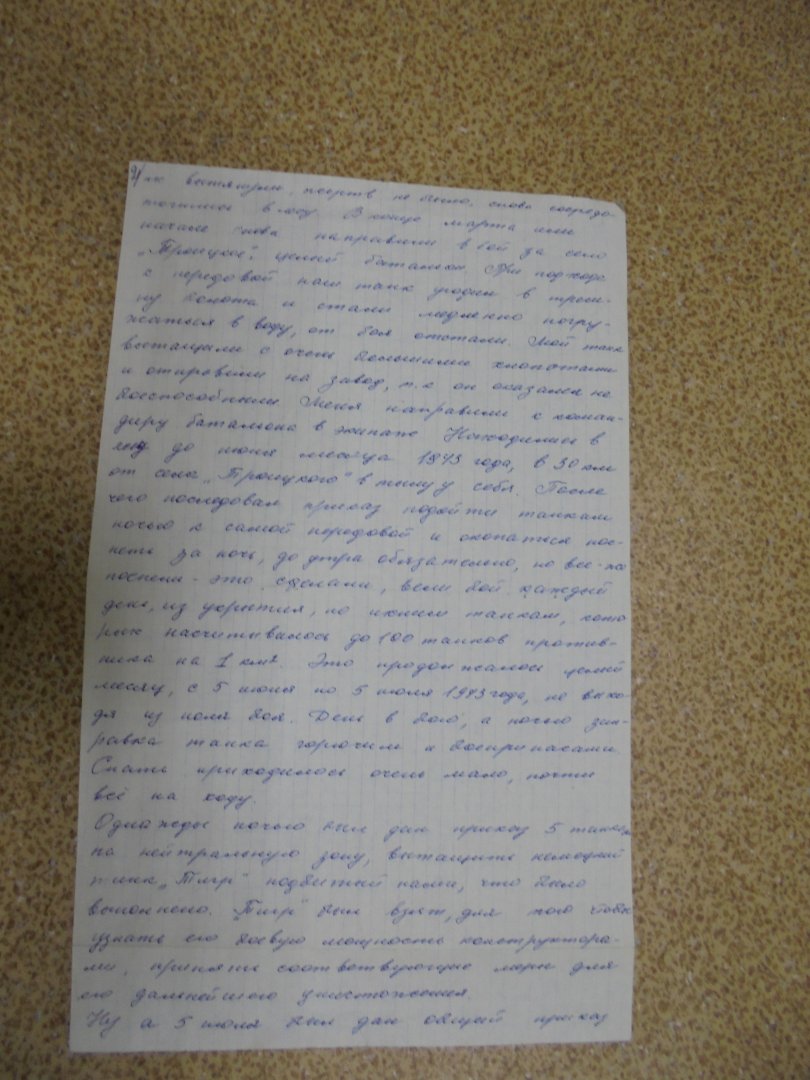 2/ их вытянули, жертв не было, снова сосредо-
точились в лесу. В конце марта или
начале снова направили в бой за село
„Троицкое", целый батальон. При подходе
к передовой наш танк угодил в трещи-
ну болота и стали медленно погру-
жаться в воду, от боя отстали. Мой танк
вытащили с очень большими хлопотами
и отправили на завод, т.к он оказался не
боеспособным. Меня направили к коман-
диру батальона в экипаж. Находились в
до июня месяца 1943 года, в 30 км
от села „Троицкого" в тылу у себя. После
чего последовал приказ подойти танкам
ночью к самой передовой и окопаться пос-
петь за ночь, до утра обязательно, но все-же
поспели - это сделали, вели бой каждый
день, из укрытия, по ихним танкам, кото
рых насчитывалось до 100 танков против-
ника на 1 км². Это продолжалось целый
месяц, с 5 июня по 5 июля 1943 года, не выхо-
дя из поля боя. День в бою, а ночью зап-
равка танка горючим и боеприпасами.
Спать приходилось очень мало, почти
всё на ходу.
Однажды ночью был дан приказ 5 танкам
на нейтральную зону, вытащить немецкий
танк „Тигр" подбитый нами, что было
выполнено. „Тигр" был взят, для того чтобы
узнать его боевую мощность конструктора-
ми, принять соответствующие меры для
его дальнейшего уничтожения.
Ну а 5 июля был дан общий приказ